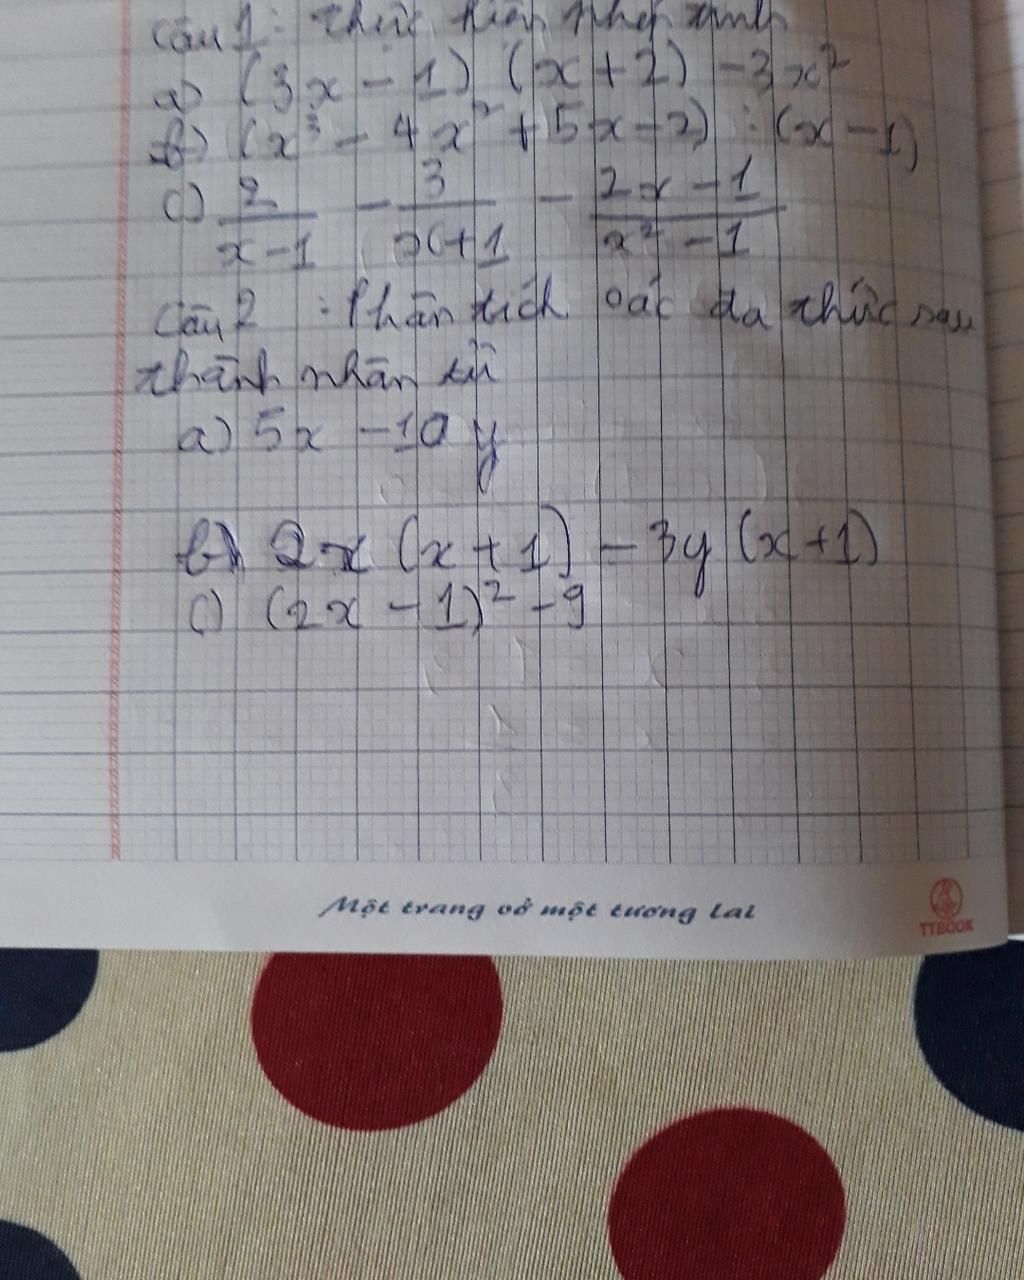 Câu 1: Thực hiện phép tính
a) (3x - 1) (x + 2) - 3x²
b) (x³ - 4x² + 5x - 2) : (x - 1)
c) 2/(x - 1) - 3/(x + 1) - (2x - 1)/(x² - 1)
Câu 2 : Phân tích các đa thức sau
thành nhân tử
a) 5x - 10y
b) 2x (x + 1) - 3y (x + 1)
c) (2x - 1)² - 9
Một trang vở một tương lai
TTBOOK